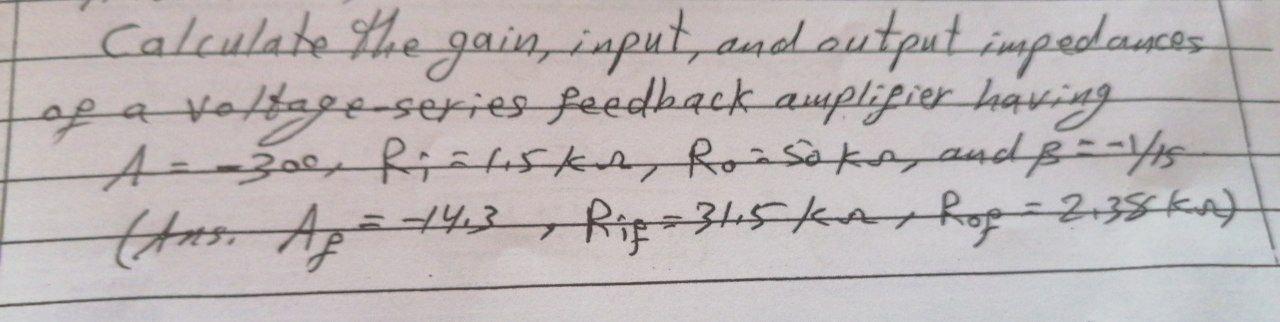 Calculate the gain, input, and output impedances
of a voltage-series feedback amplifier having
A = -300, Ri = 1.5 kΩ, Ro = 50 kΩ, and β = -1/15
(Ans. Af = -14.3, Rif = 31.5 kΩ, Rof = 2.38 kΩ)